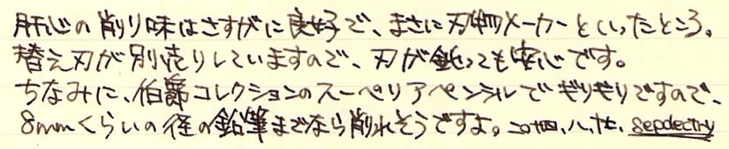 肝心の削り味はさすがに良好で、まさに刃物メーカーといったところ。
替え刃が別売りしていますので、刃が鈍っても安心です。
ちなみに、伯爵コレクションのスーペリアペンシルでギリギリですので、
8mmくらいの径の鉛筆までなら削れそうですよ。 sepdectry